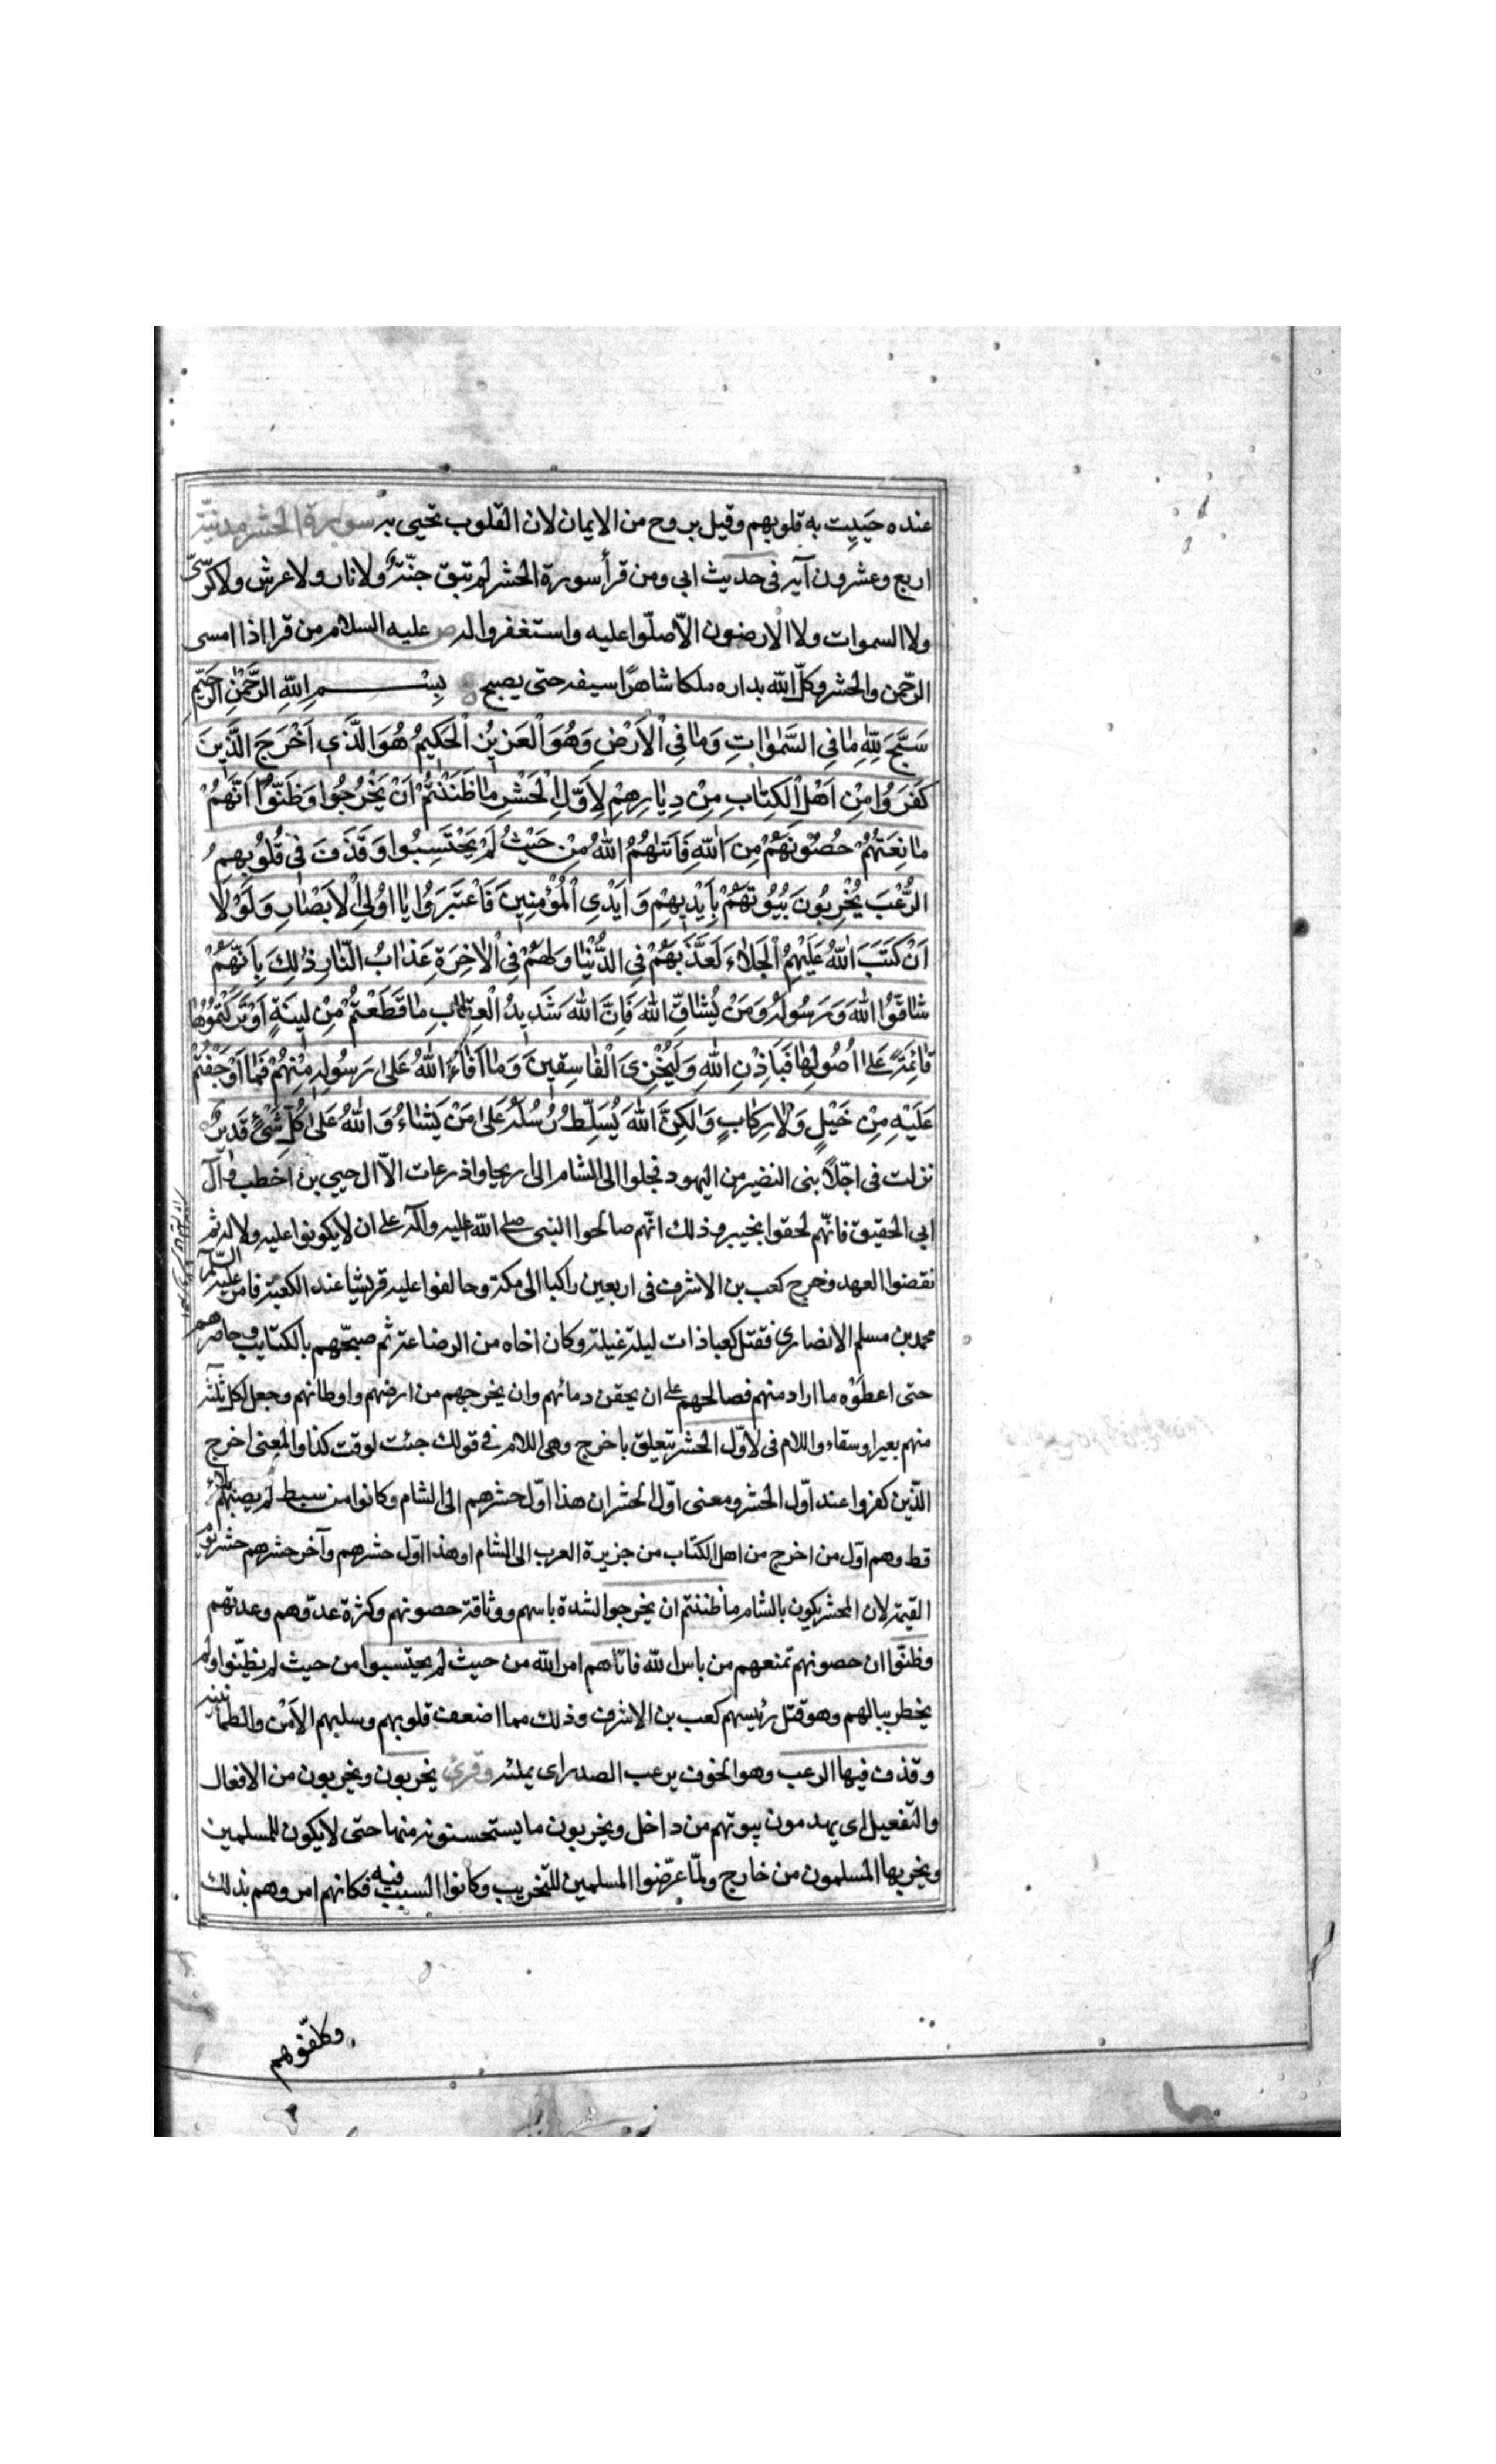 عنده حَيِيت به قلوبهم وقيل بروح من الايمان لان القلوب تحيى به سورة الحشر مدنيّة
اربع وعشرون آية فى حديث ابى ومن قرأ سورة الحشر لم تبق جنّة ولا نار ولا عرش ولا كرسىّ
ولا السموات ولا الارضون الاّ صلّوا عليه واستغفروا له ص عليه السلام من قرا اذا امسى
الرّحمن والحشر وكلّ اللّه بداره ملكا شاهرًا سيفه حتى يصبح بِسْمِ اللّهِ الرَّحْمٰنِ الرَّحيمِ
سَبَّحَ لِلّٰهِ مٰا فِى السَّمٰوٰاتِ وَمٰا فِى الْاَرْضِ وَهُوَ الْعَزيزُ الْحَكيمُ هُوَ الَّذي اَخْرَجَ الَّذينَ
كَفَرَوُا مِنْ اَهْلِ الْكِتٰابِ مِنْ دِيٰارِهِمْ لِاَوَّلِ الْحَشْرِ مٰا ظَنَنْتُمْ اَنْ يَخْرُجُوا وَظَنّوُا اَنَّهُمْ
مٰانِعَتُهُمْ حُصُونُهُمْ مِنَ اللّٰهِ فَاَتٰيهُمُ اللّٰهُ مِنْ حَيْثُ لَمْ يَحْتَسِبُوا وَقَذَفَ فِى قُلُوبِهِمُ
الرُّعْبَ يُخْرِبُونَ بُيُوتَهُمْ بِاَيْديهِمْ وَ اَيْدِي الْمُؤْمِنِينَ فَاعْتَبِرَوُا يٰا اوُلِى الْاَبْصٰارِ وَلَوْلٰا
اَنْ كَتَبَ اللّٰهُ عَلَيْهِمُ الْجَلٰاءَ لَعَذَّبَهُمْ فِى الدُّنْيٰا وَلَهُمْ فِى الْاٰخِرَةِ عَذٰابُ النّٰارِ ذٰلِكَ بِاَنَّهُمْ
شٰاقَّوُا اللّٰهَ وَرَسُولَهُ وَمَنْ يُشٰاقِّ اللّٰهَ فَاِنَّ اللّٰهَ شَديدُ الْعِقٰابِ مٰا قَطَعْتُمْ مِنْ لينَةٍ اَوْ تَرَكْتُمُوهٰا
قٰائِمَةً عَلىٰ اُصُولِهٰا فَبِاِذْنِ اللّٰهِ وَلِيُخْزِىَ الْفٰاسِقينَ وَمٰا اَفٰاءَ اللّٰهُ عَلىٰ رَسُولِهِ مِنْهُمْ فَمٰا اَوْجَفْتُمْ
عَلَيْهِ مِنْ خَيْلٍ وَلٰا رِكٰابٍ وَلٰكِنَّ اللّٰهَ يُسَلِّطُ رُسُلَهُ عَلىٰ مَنْ يَشٰاءُ وَ اللّٰهُ عَلىٰ كُلِّ شَيْئٍ قَديرٌ
نزلت فى اجلآ بنى النضير من اليهود فجلوا الى الشام الى اريحا واذرعات الاّ ال حيي بن اخطب وآل
ابى الحقيق فانّهم لحقوا بخيبر وذلك انّهم صالحوا النبى صلى اللّه عليه وآله على ان لا يكونوا عليه ولا له ثم
نقضوا العهد وخرج كعب بن الاشرف فى اربعين راكبا الى مكة وحالفوا عليه قريشا عند الكعبة فامر عليه السّلم
محمد بن مسلم الانصارى فقتل كعبا ذات ليلة غيلة وكان اخاه من الرضاعة ثم صبحّهم بالكتايب وحاصرهم
حتى اعطَوْه ما اراد منهم فصالحهم على ان يحقن دمائهم وان يخرجهم من ارضهم واوطانهم وجعل لكل ثلثة
منهم بعيرا وسقاء واللام فى لاوّل الحشر يتعلق باخرج وهى اللام فى قولك جئت لوقت كذا والمعنى اخرج
الذّين كفروا عند اوّل الحشر ومعنى اوّل الحشر ان هذا اوّل حشرهم الى الشام وكانوا من سبط لم يصبهم جلاء
قط وهم اوّل من اخرج من اهل الكتاب من جزيرة العرب الى الشام او هذا اوّل حشرهم وآخر حشرهم حشر يوم
القيمة لان المحشر يكون بالشام ما ظننتم ان يخرجوا لشدة باسهم ووثاقة حصونهم وكثرة عدّوهم وعدتهم
وظنّوا ان حصونهم تمنعهم من باس اللّه فاتٰاهم امر اللّه من حيث لم يحتسبوا من حيث لم يظنّوا ولم
يخطر ببالهم وهو قتل رئيسهم كعب بن الاشرف وذلك مما اضعف قلوبهم وسلبهم الاَمْن والطمأنينة
وقذف فيها الرعب وهو الخوف يرعب الصدر اى يملئه وقرئ يخربون ويخربون من الافعال
والتفعيل اى يهدمون بيوتهم من داخل ويخربون ما يستحسنونه منها حتى لا يكون للمسلمين
ويخربها المسلمون من خارج ولمّا عرّضوا المسلمين للتخريب وكانوا السبب فيه فكانهم امروهم بذلك
وكلفّوهم